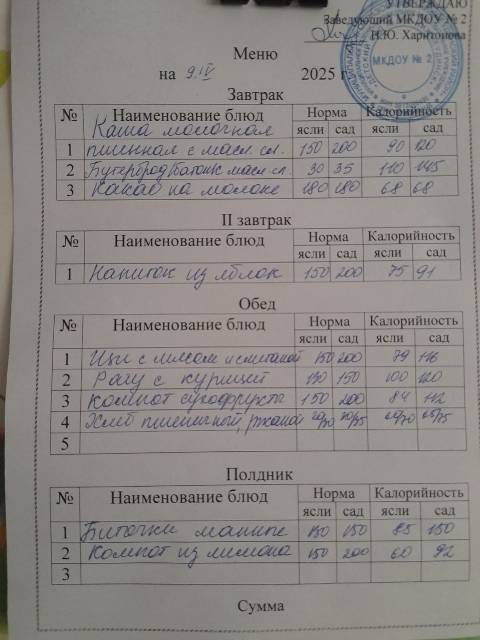 УТВЕРЖДАЮ
Заведующий МКДОУ № 2
Н.Ю. Харитонова
МКДОУ № 2
Меню
на 9.IV 2025 г.
Завтрак
№ Наименование блюд Норма Калорийность
ясли сад ясли сад
Каша молочная
1 пшенная с масл. сл. 150 200 90 120
2 Бутерброд батон с масл. сл. 30 35 110 145
3 Какао на молоке 180 180 68 68
II завтрак
№ Наименование блюд Норма Калорийность
ясли сад ясли сад
1 Напиток из яблок 150 200 75 91
Обед
№ Наименование блюд Норма Калорийность
ясли сад ясли сад
1 Щи с мясом и сметаной 150 200 79 116
2 Рагу с курицей 130 150 100 120
3 Компот сухофрукты 150 200 84 112
4 Хлеб пшеничный, ржаной
5
Полдник
№ Наименование блюд Норма Калорийность
ясли сад ясли сад
1 Биточки манные 130 150 85 150
2 Компот из лимона 150 200 60 92
3
Сумма